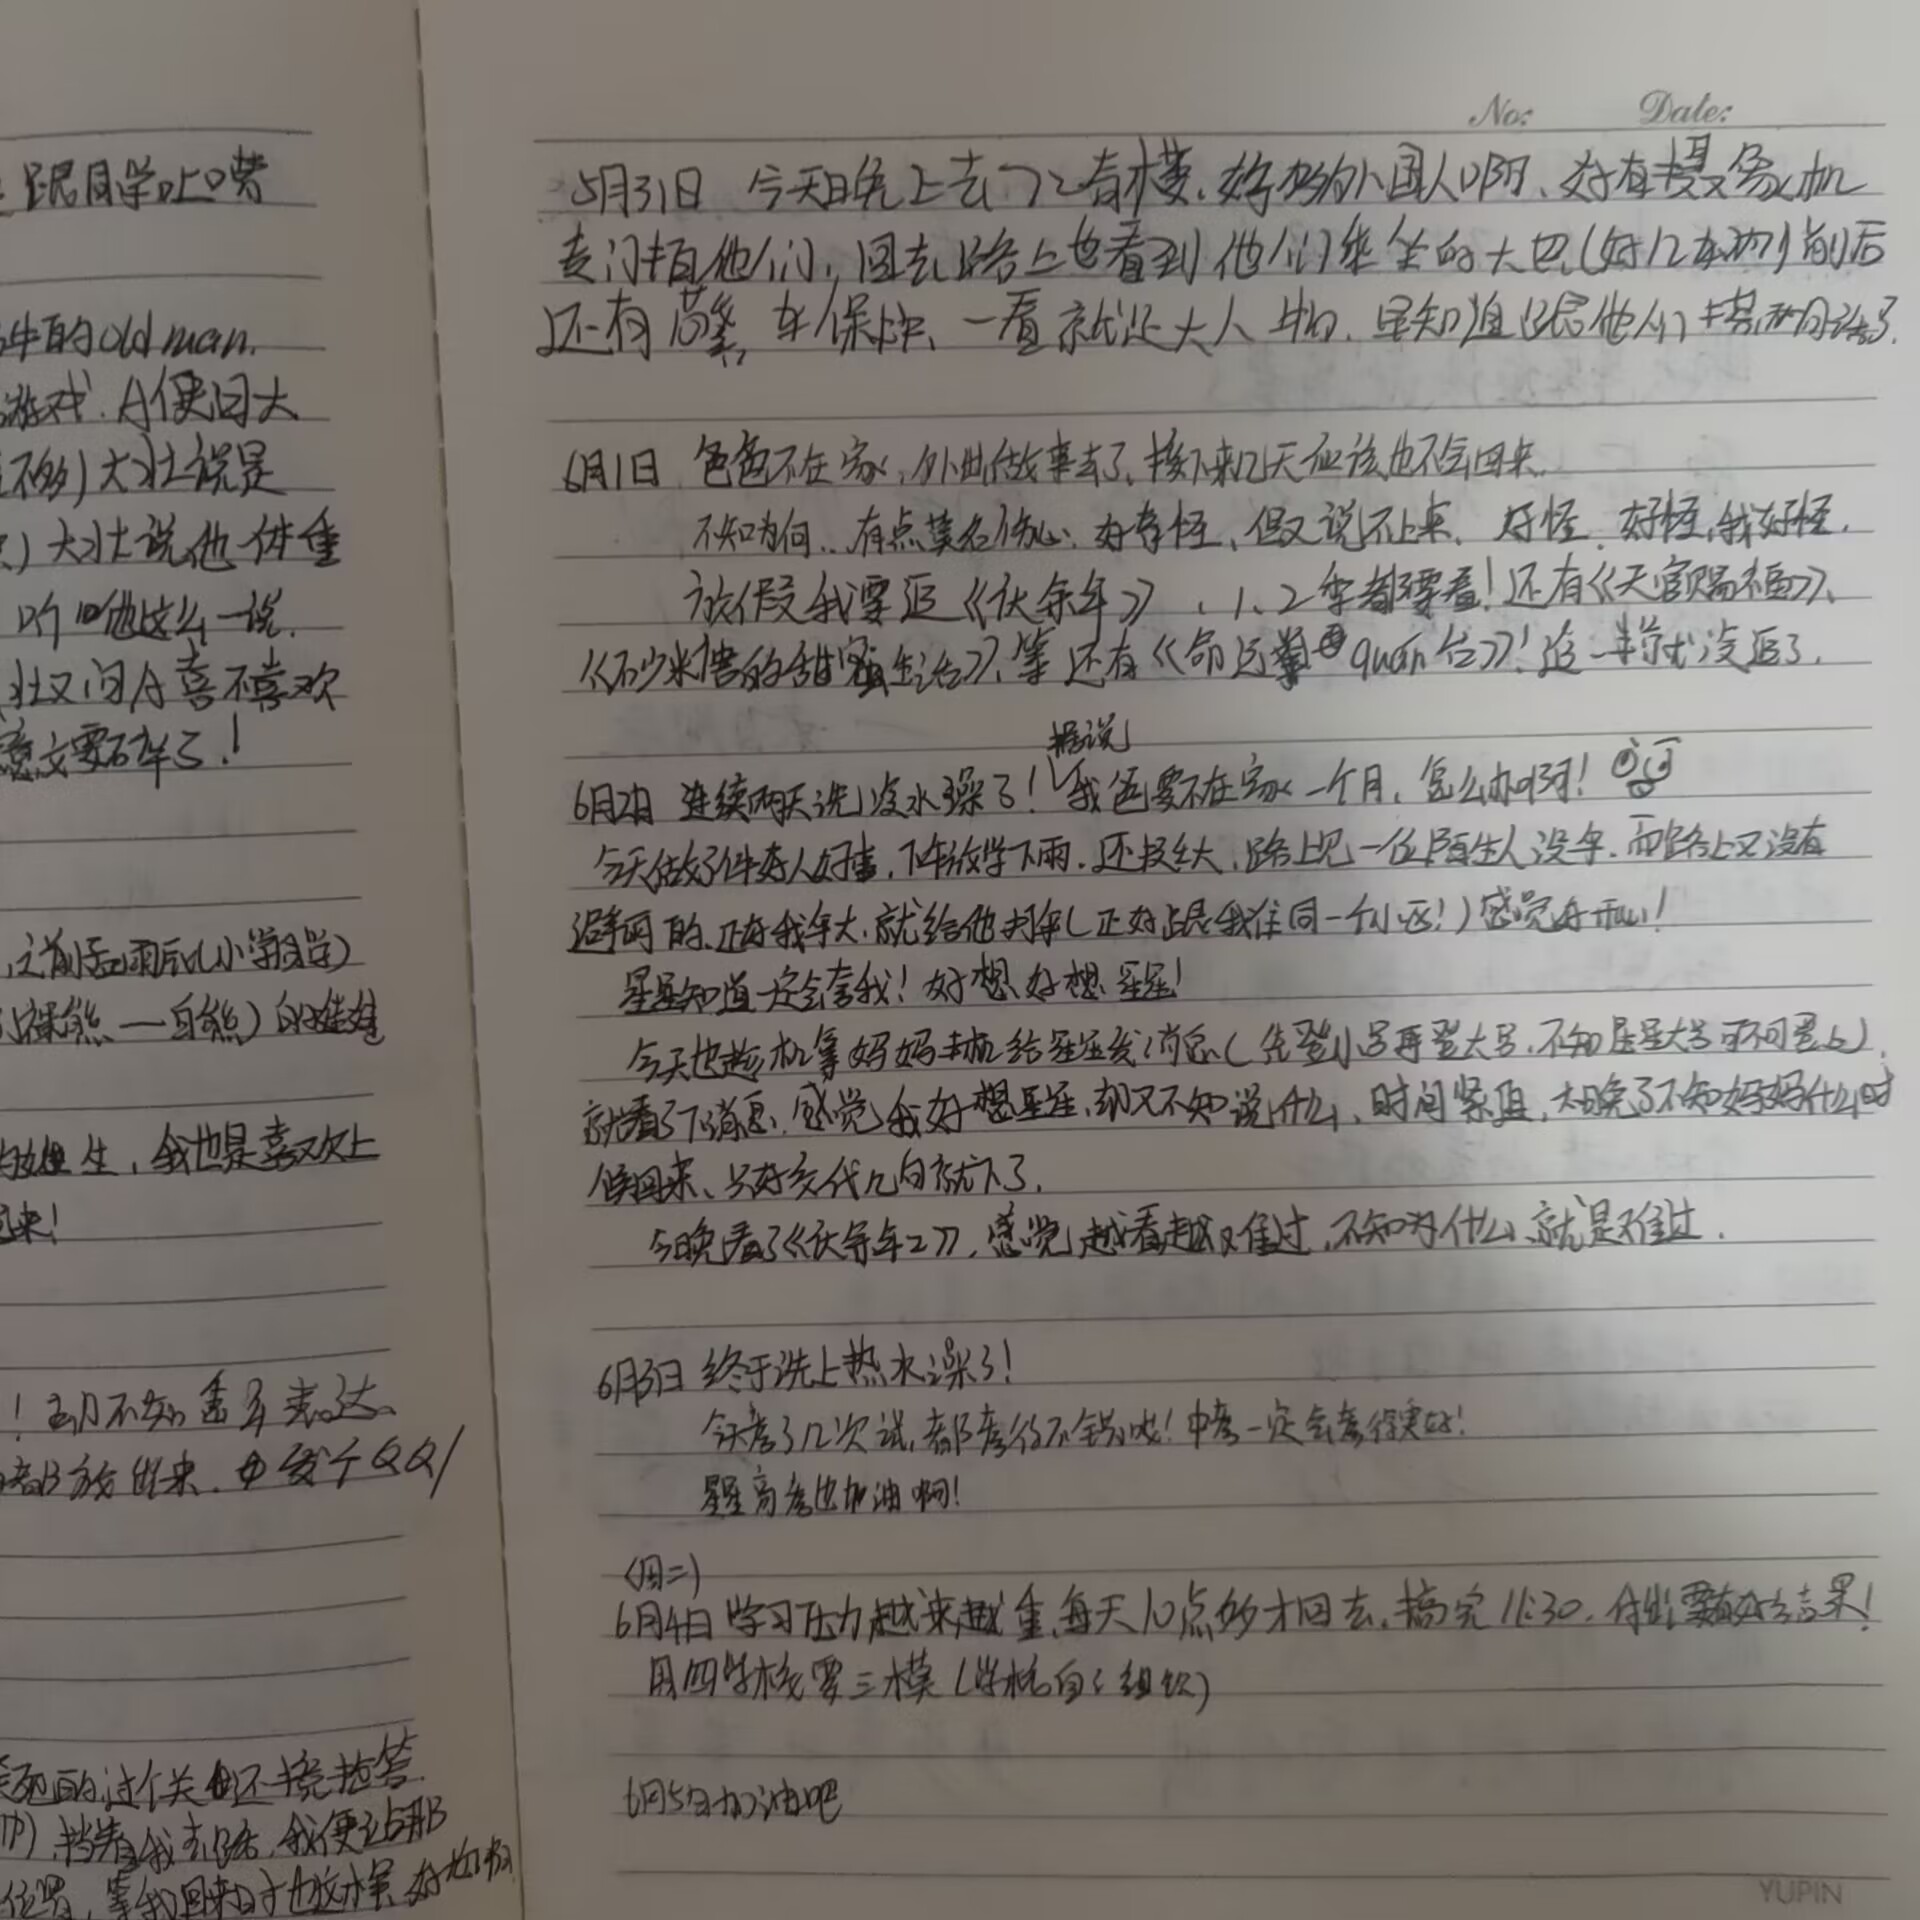 跟同学吐嘈
牛的old man.
游戏.A便问大
不够)大壮说是
)大壮说他体重
听他这么一说.
壮又问A喜不喜欢
意文要碎了!
,之前孟雨辰(小学同学)
棕熊—白熊)的娃娃
生,我也是喜欢上
来!
!却不知怎么表达.
都放出来.发个QQ/
的,过个关还搞抢答
挡着我去路.我便站那
位置,等我回来时
No: Date:
5月31日 今天晚上去看楼.好多外国人啊、好有摄像机
专门拍他们,回去路上也看到他们乘坐的大巴(好几辆)前后
还有警车保护、一看就是大人物.早知道跟他们搭两句话了.
6月1日 爸爸不在家,外出做事去了、接下来几天应该也不会回来.
不知为何..有点莫名伤心:好奇怪、但又说不上来、好怪.好怪,我好怪.
放假我要追《庆余年》、1、2季都要看!还有《天官赐福》、
《石少来唐的甜蜜生活》、等还有《命运 quan 台》!追一半就没追了.
据说
6月2日 连续两天洗冷水澡了!我爸要不在家一个月,怎么办啊!
今天做了件好人好事,下午放学下雨.还挺大,路上见一位陌生人没伞.而路上又没有
避雨的、正好我伞大,就给他打伞(正好跟我住同一个小区!)感觉好开心!
星星知道一定会夸我!好想好想星星!
今天也趁机拿妈妈手机给星星发消息(先登小号再登大号.不知星星大号可不可登上).
就看了下消息.感觉我好想星星,却又不知说什么、时间紧迫,太晚了不知妈妈什么时
候回来、只好交代几句就下了.
今晚看了《庆余年2》,感觉越看越难过,不知为什么、就是难过.
6月3日 终于洗上热水澡了!
今天考了几次试,都考得不错哦!中考一定会考得更好!
星星高考也加油啊!
(周二)
6月4日 学习压力越来越重,每天10点多才回去,搞完11:30.付出要有好结果!
周四学校要三模(学校自己组织)
6月5日加油吧
YUPIN